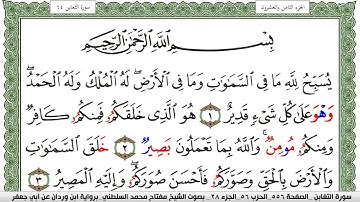 الجزء الثامن والعشرون
سورة التغابن ٦٤
بِسْمِ اللَّهِ الرَّحْمَٰنِ الرَّحِيمِ
يُسَبِّحُ لِلَّهِ مَا فِي السَّمَٰوَٰتِ وَمَا فِي الْأَرْضِ لَهُ الْمُلْكُ وَلَهُ الْحَمْدُ
وَهْوَ عَلَىٰ كُلِّ شَيْءٍ قَدِيرٌ ١ هُوَ الَّذِي خَلَقَكُمُ فَمِنكُمُ كَافِرٌ
وَمِنكُمُ مُومِنٌ وَاللَّهُ بِمَا تَعْمَلُونَ بَصِيرٌ ٢ خَلَقَ السَّمَٰوَٰتِ
وَالْأَرْضَ بِالْحَقِّ وَصَوَّرَكُمُ فَأَحْسَنَ صُوَرَكُمُ وَإِلَيْهِ الْمَصِيرُ ٣
سورة التغابن - الصفحة ٥٥٦ - الحزب ٥٦ - الجزء ٢٨ - بصوت الشيخ مفتاح محمد السلطني - برواية ابن وردان عن أبي جعفر